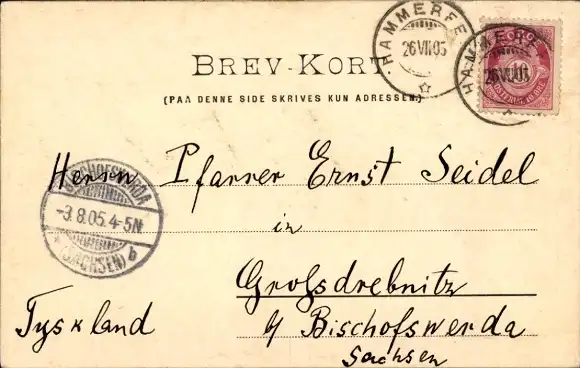 HAMMERFE
26 VII 05
HAMMERFE
26 VII 05
NORGE
BREV-KORT
(PAA DENNE SIDE SKRIVES KUN ADRESSEN.)
Herrn Pfarrer Ernst Seidel
in
Großdrebnitz
b/ Bischofswerda
Sachsen
Tyskland
BISCHOFSWERDA
-3.8.05. 4-5N
(SACHSEN) b